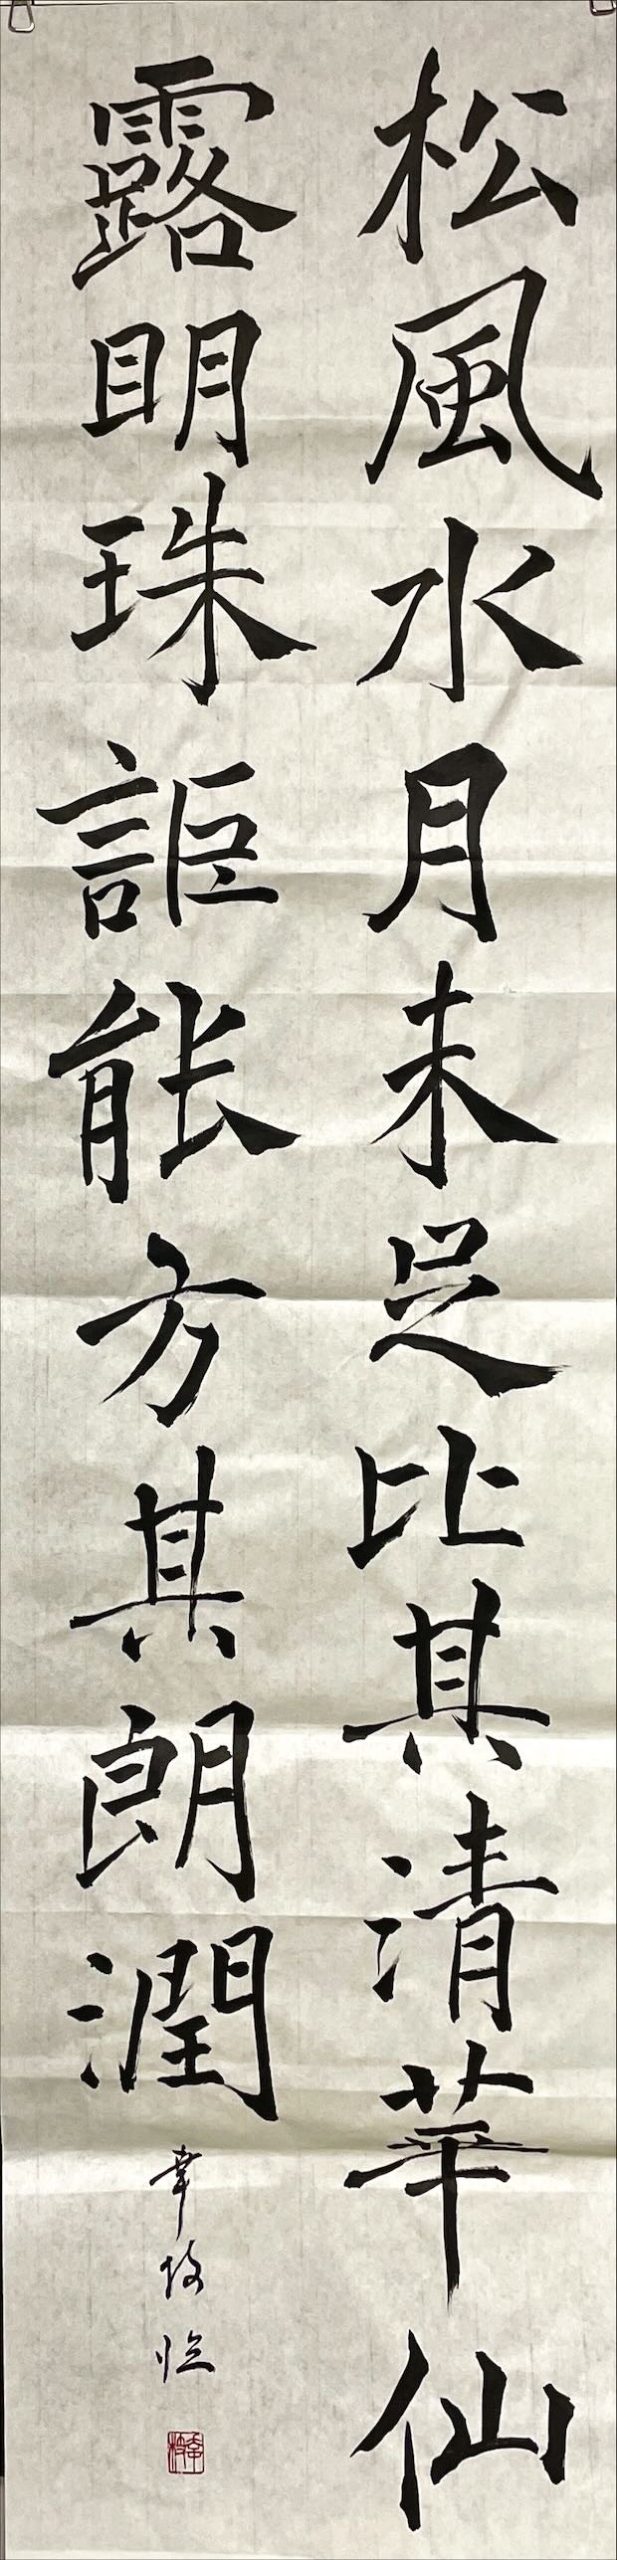 松風水月未足比其清華仙
露明珠詎能方其朗潤
幸枝臨